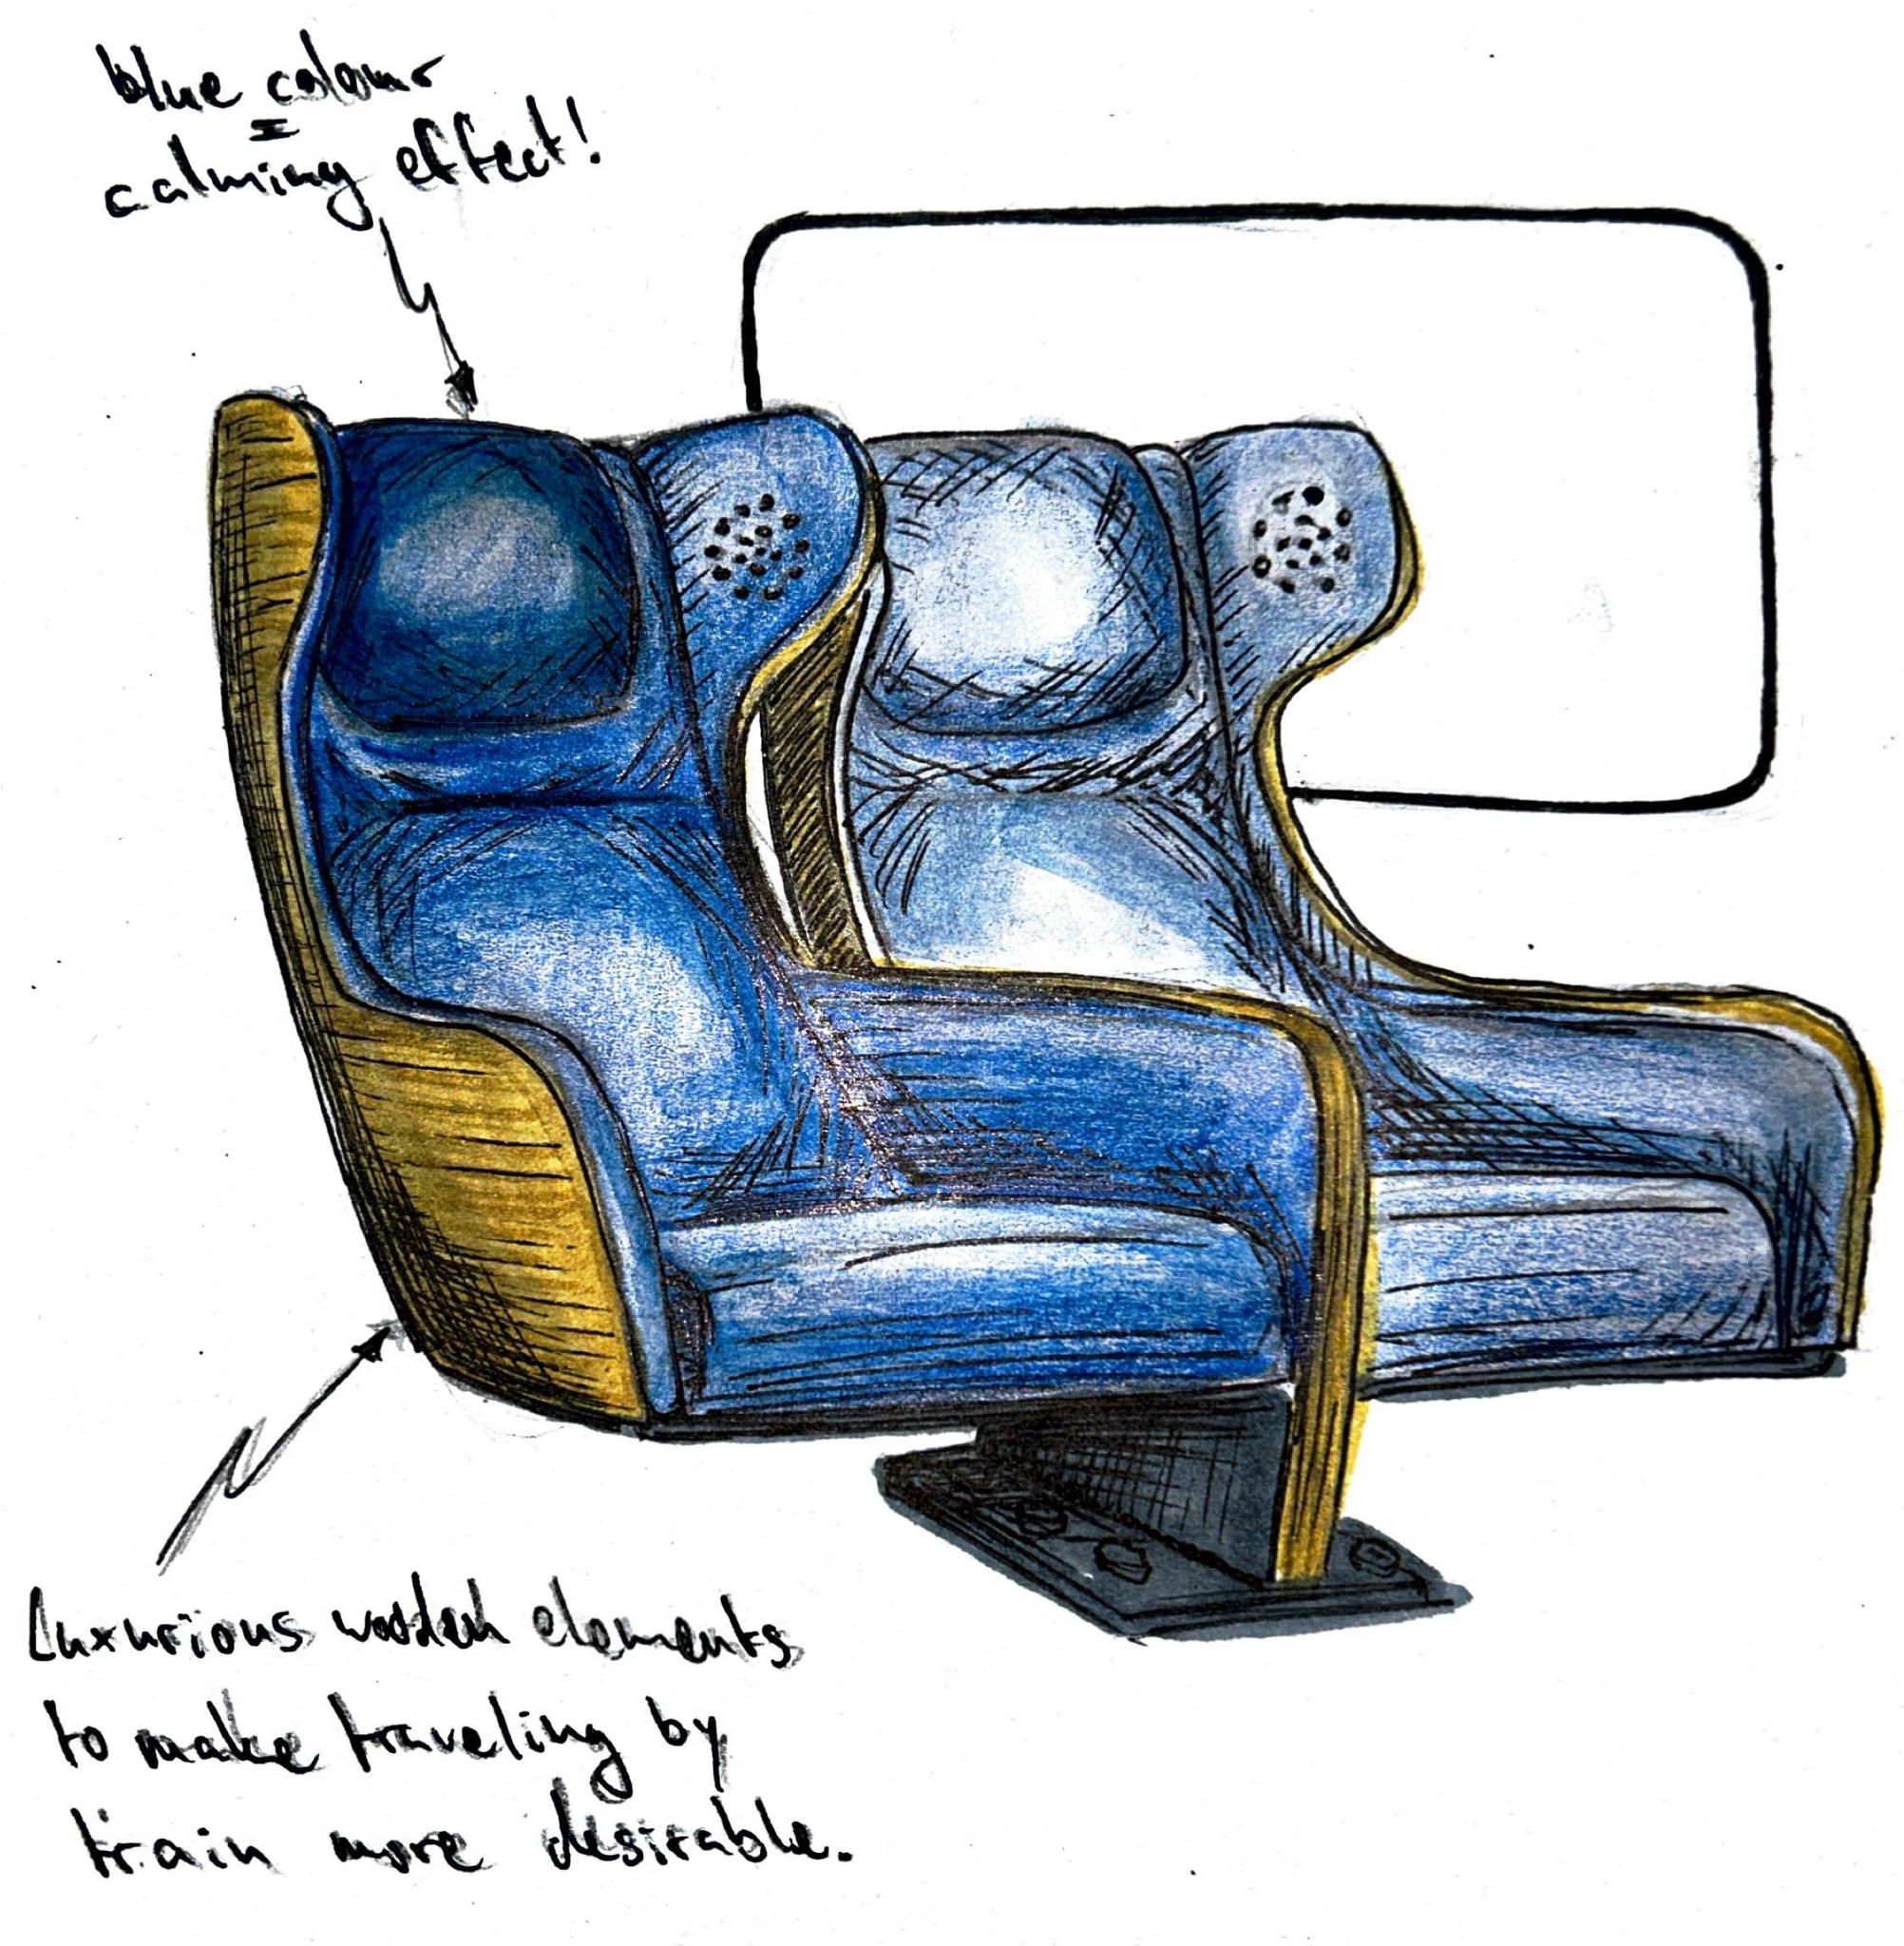 blue colour
=
calming effect!
Luxurious wooden elements
to make traveling by
train more desirable.